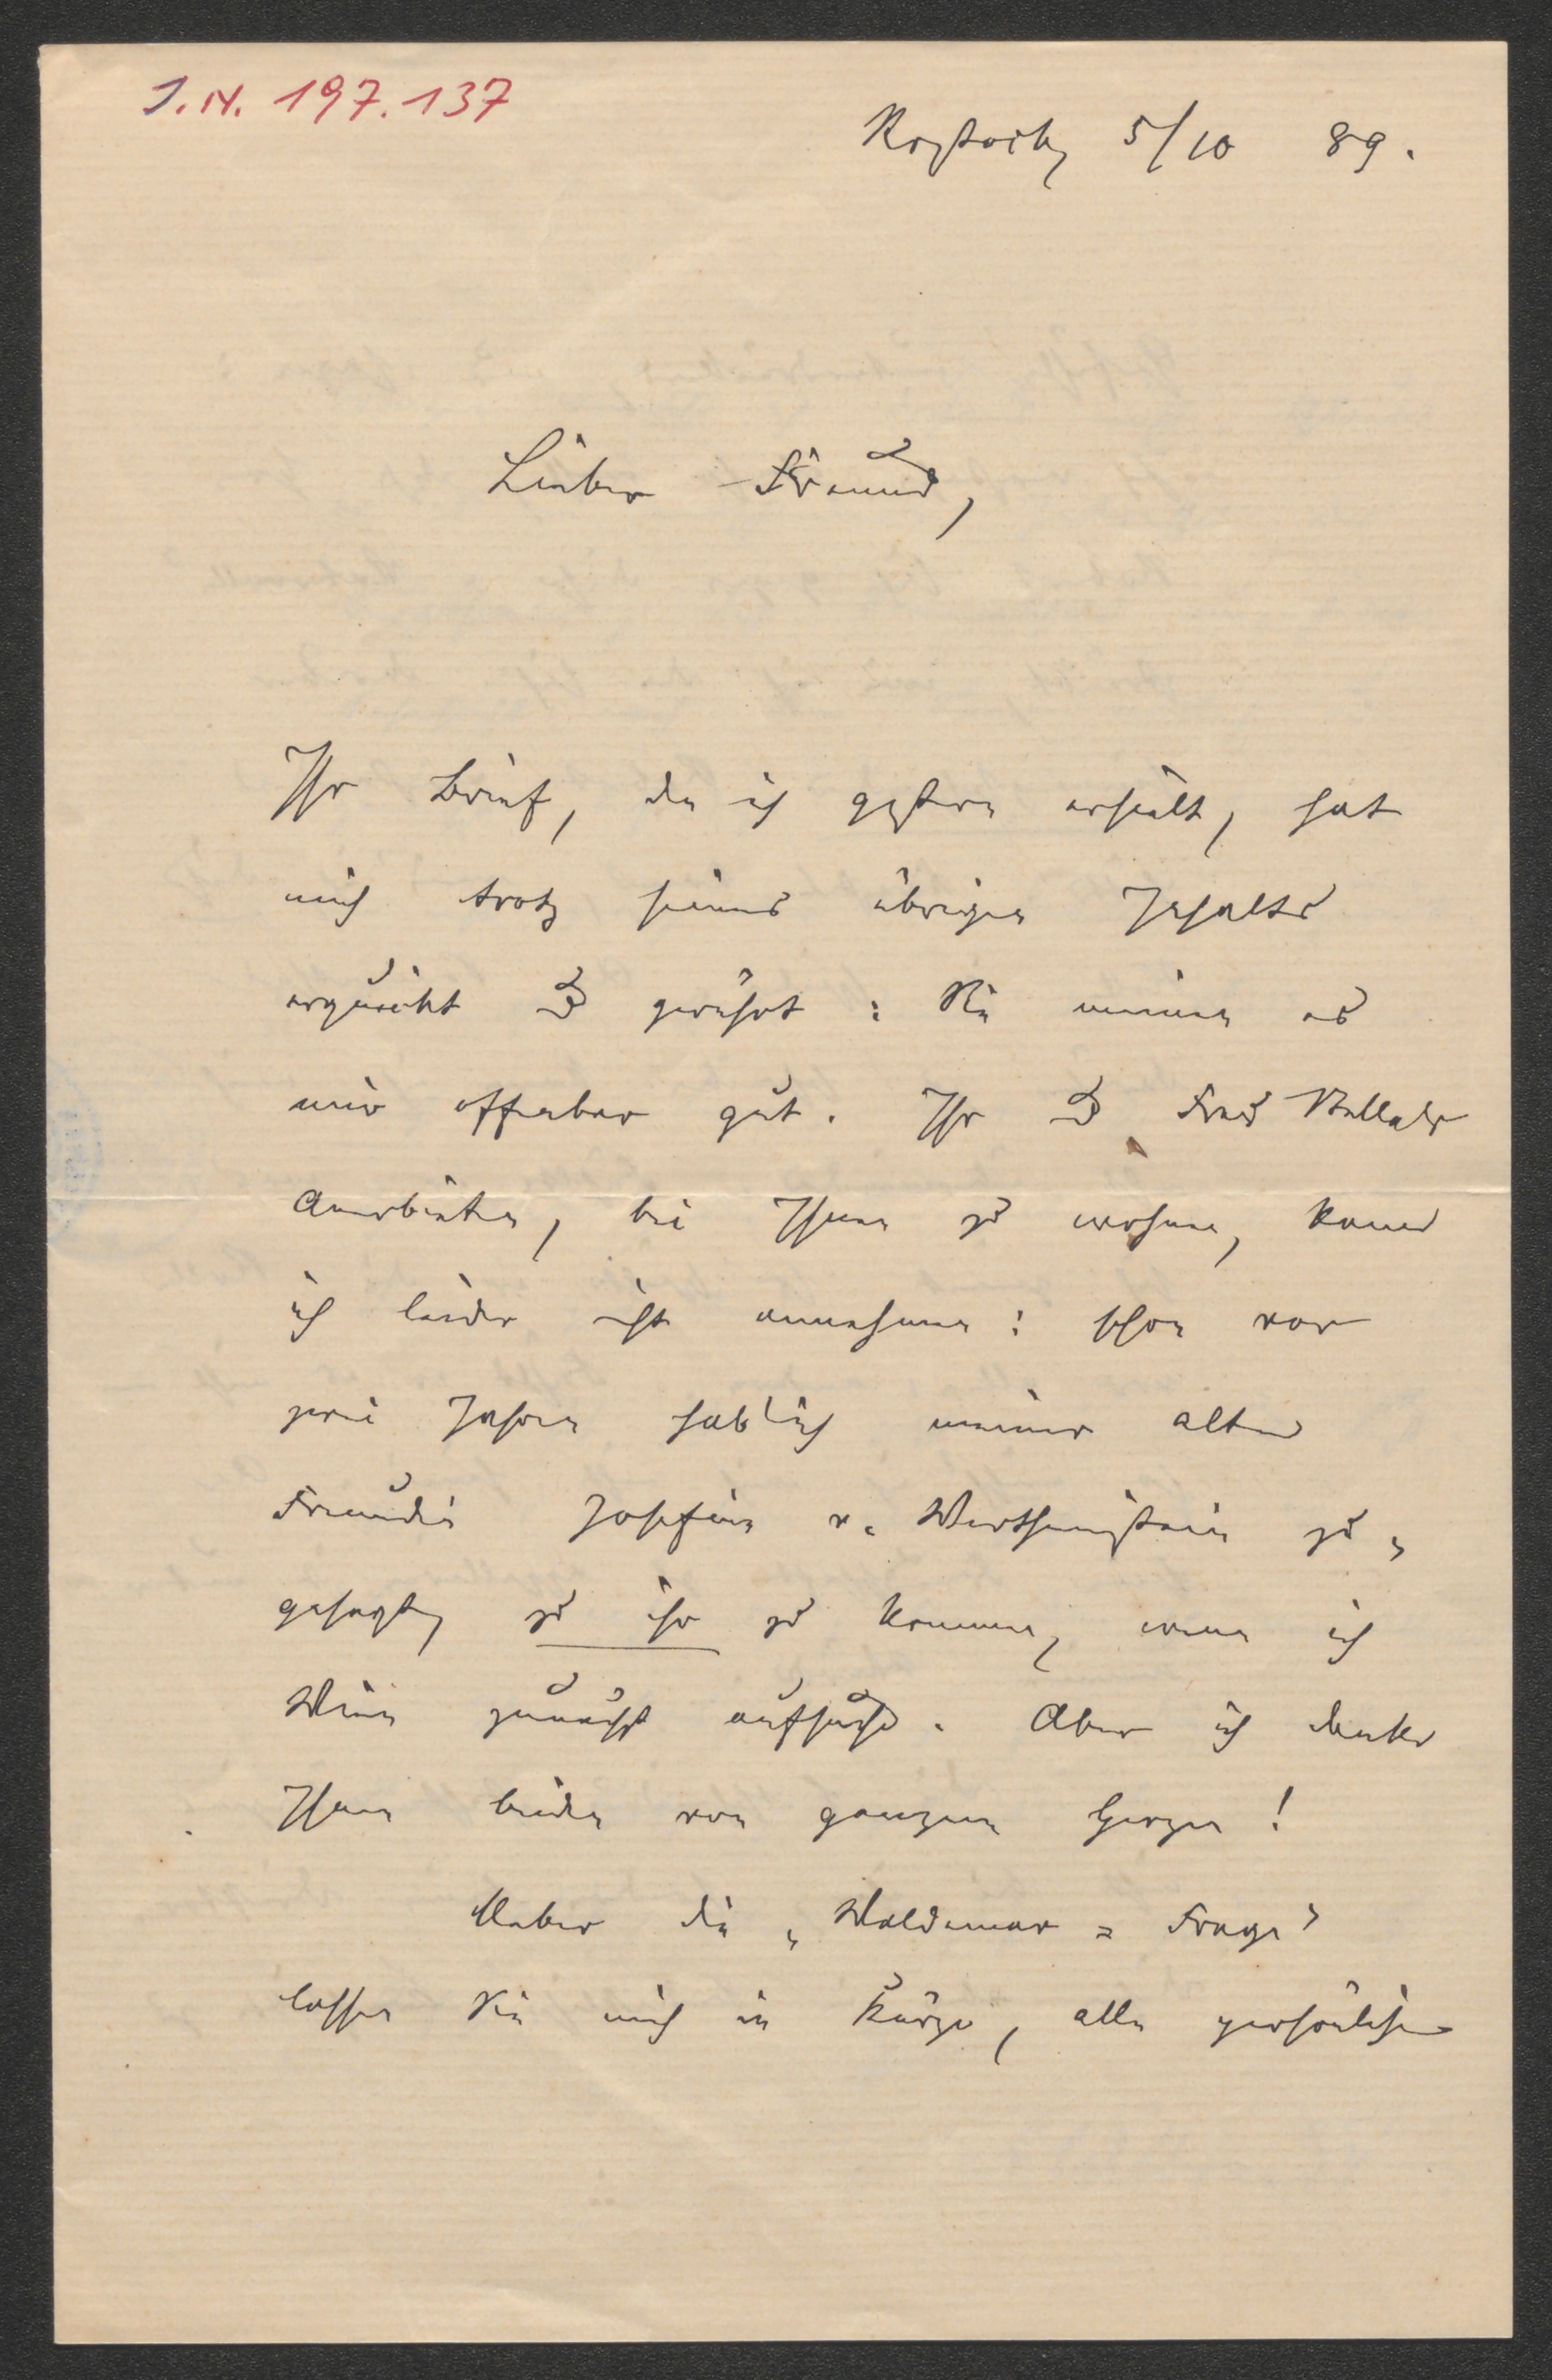 J.N. 197.137
Rostock, 5/10 89.
Lieber Freund,
Ihr Brief, den ich gestern erhielt, hat
mich trotz seines übrigen Inhalts
erquickt & gerührt: Sie meinen es
mir offenbar gut. Ihr & Frau Stella's
Anerbieten, bei Ihnen zu wohnen, kann
ich leider nicht annehmen: schon vor
zwei Jahren hab' ich meiner alten
Freundin Josefine v. Wertheimstein zu-
gesagt, zu ihr zu kommen, wenn ich
Wien zunächst aufsuche. Aber ich danke
Ihnen beiden von ganzem Herzen!
Ueber die „Waldemar-Frage"
lassen Sie mich in Kürze, alle persönlichen